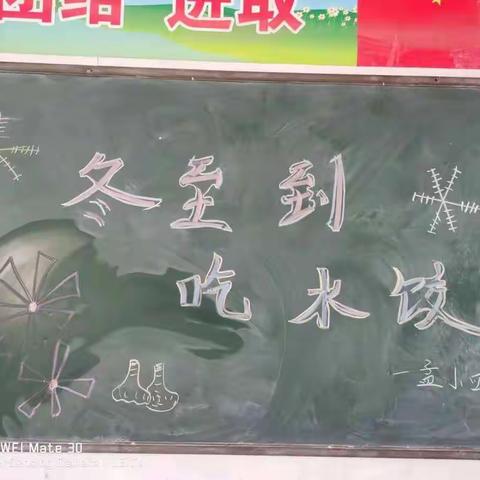 团结 进取
冬至到
吃水饺
一孟小四
WEI Mate 30